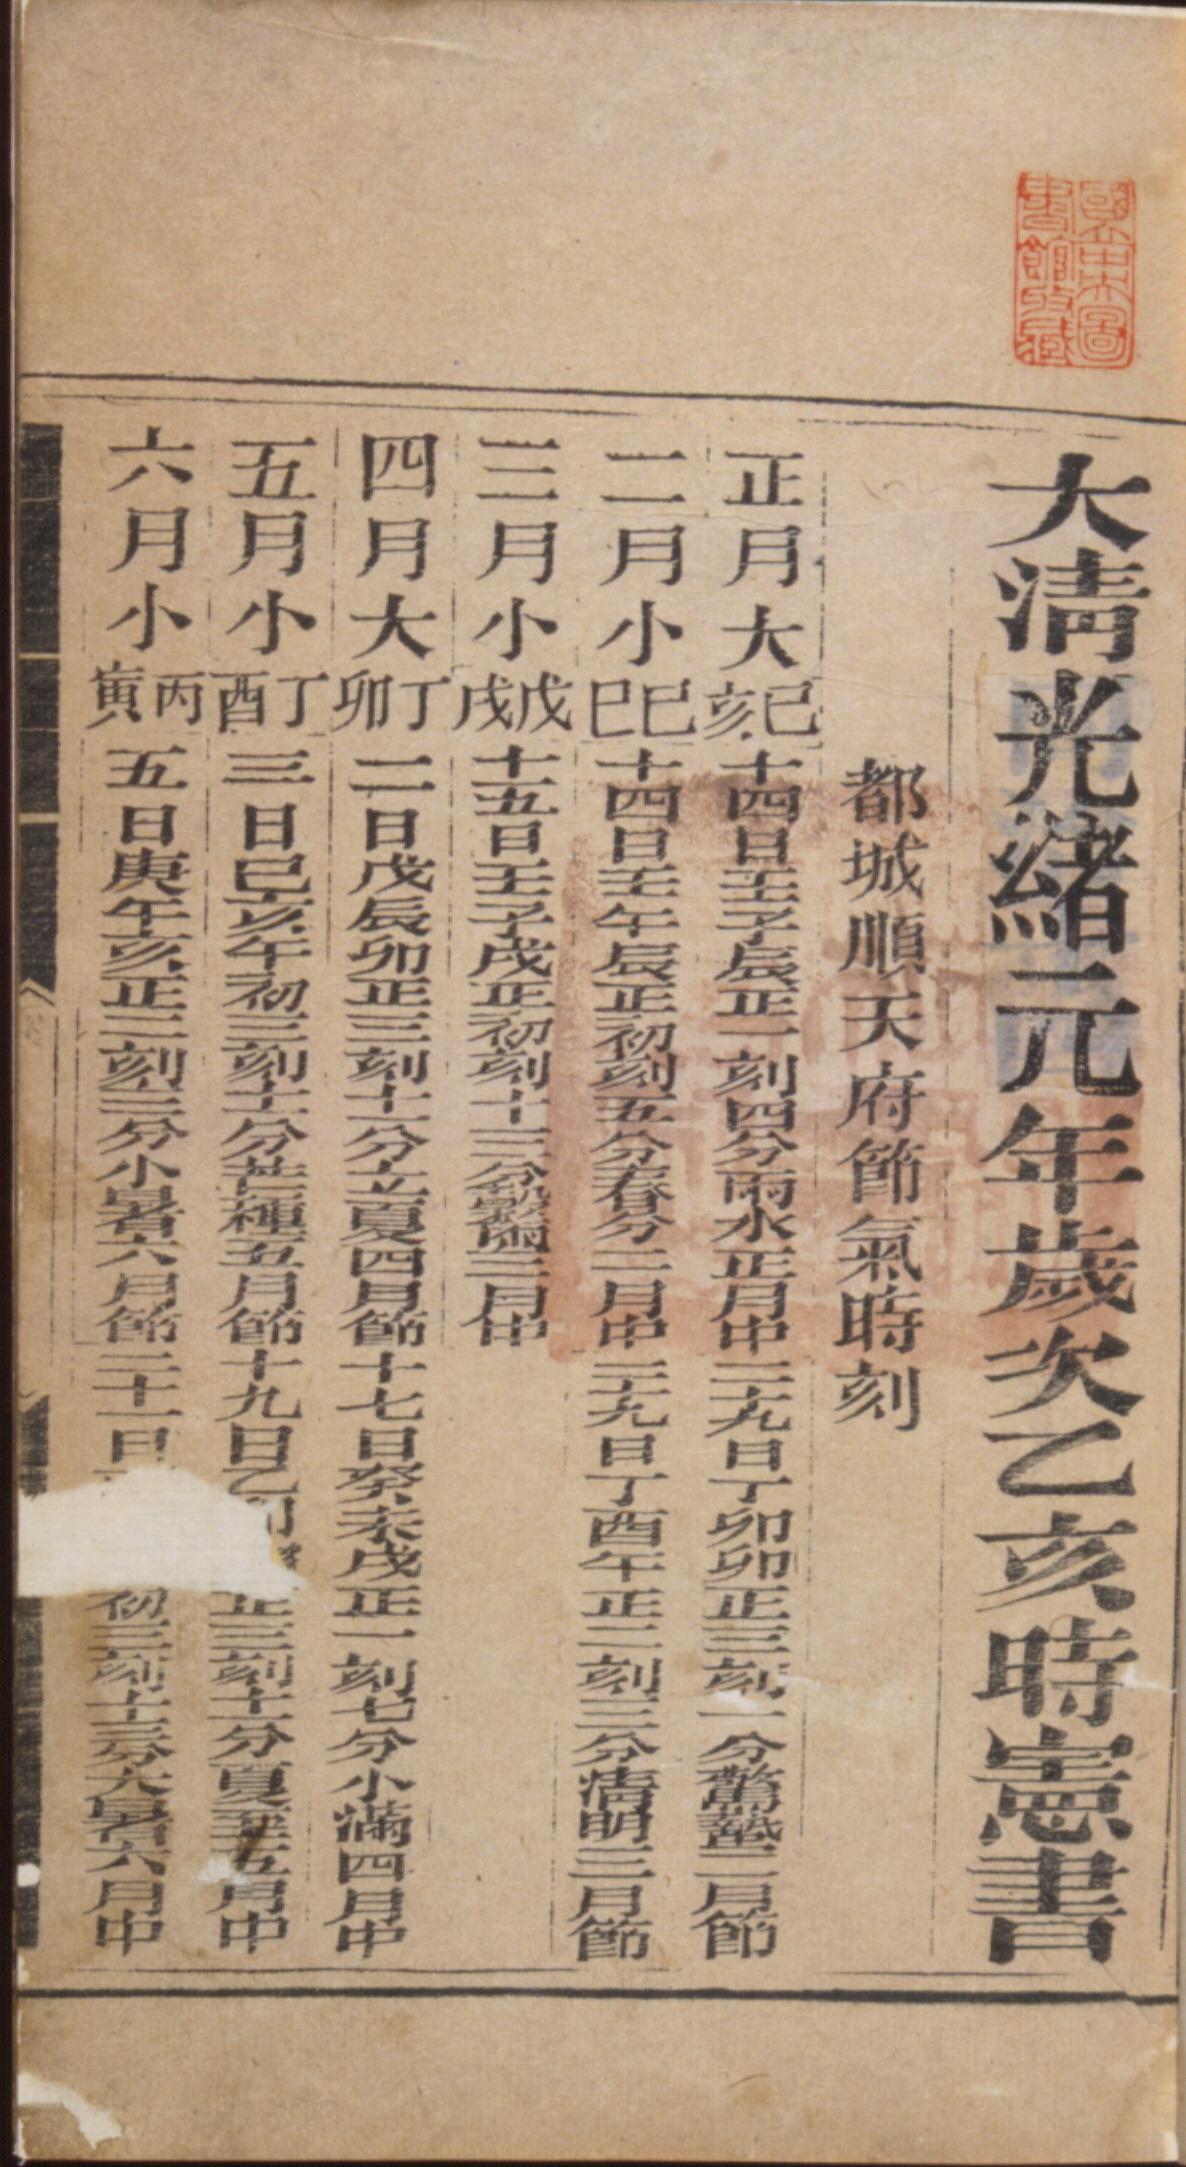 大清光緒元年歲次乙亥時憲書
都城順天府節氣時刻
正月大己亥十四日壬子辰正一刻四分雨水正月中二十九日丁卯卯正三刻一分驚蟄二月節
二月小己巳十四日壬午辰正初刻五分春分二月中二十九日丁酉午正二刻三分清明三月節
三月小戊戌十五日壬子戌正初刻十三分穀雨三月中
四月大丁卯二日戊辰卯正三刻十一分立夏四月節十七日癸未戌正一刻七分小滿四月中
五月小丁酉三日己亥午初三刻十一分芒種五月節十九日乙卯正三刻十一分夏至五月中
六月小丙寅五日庚午亥正二刻三分小暑六月節二十一日初三刻十三分大暑六月中
國立中央圖書館收藏